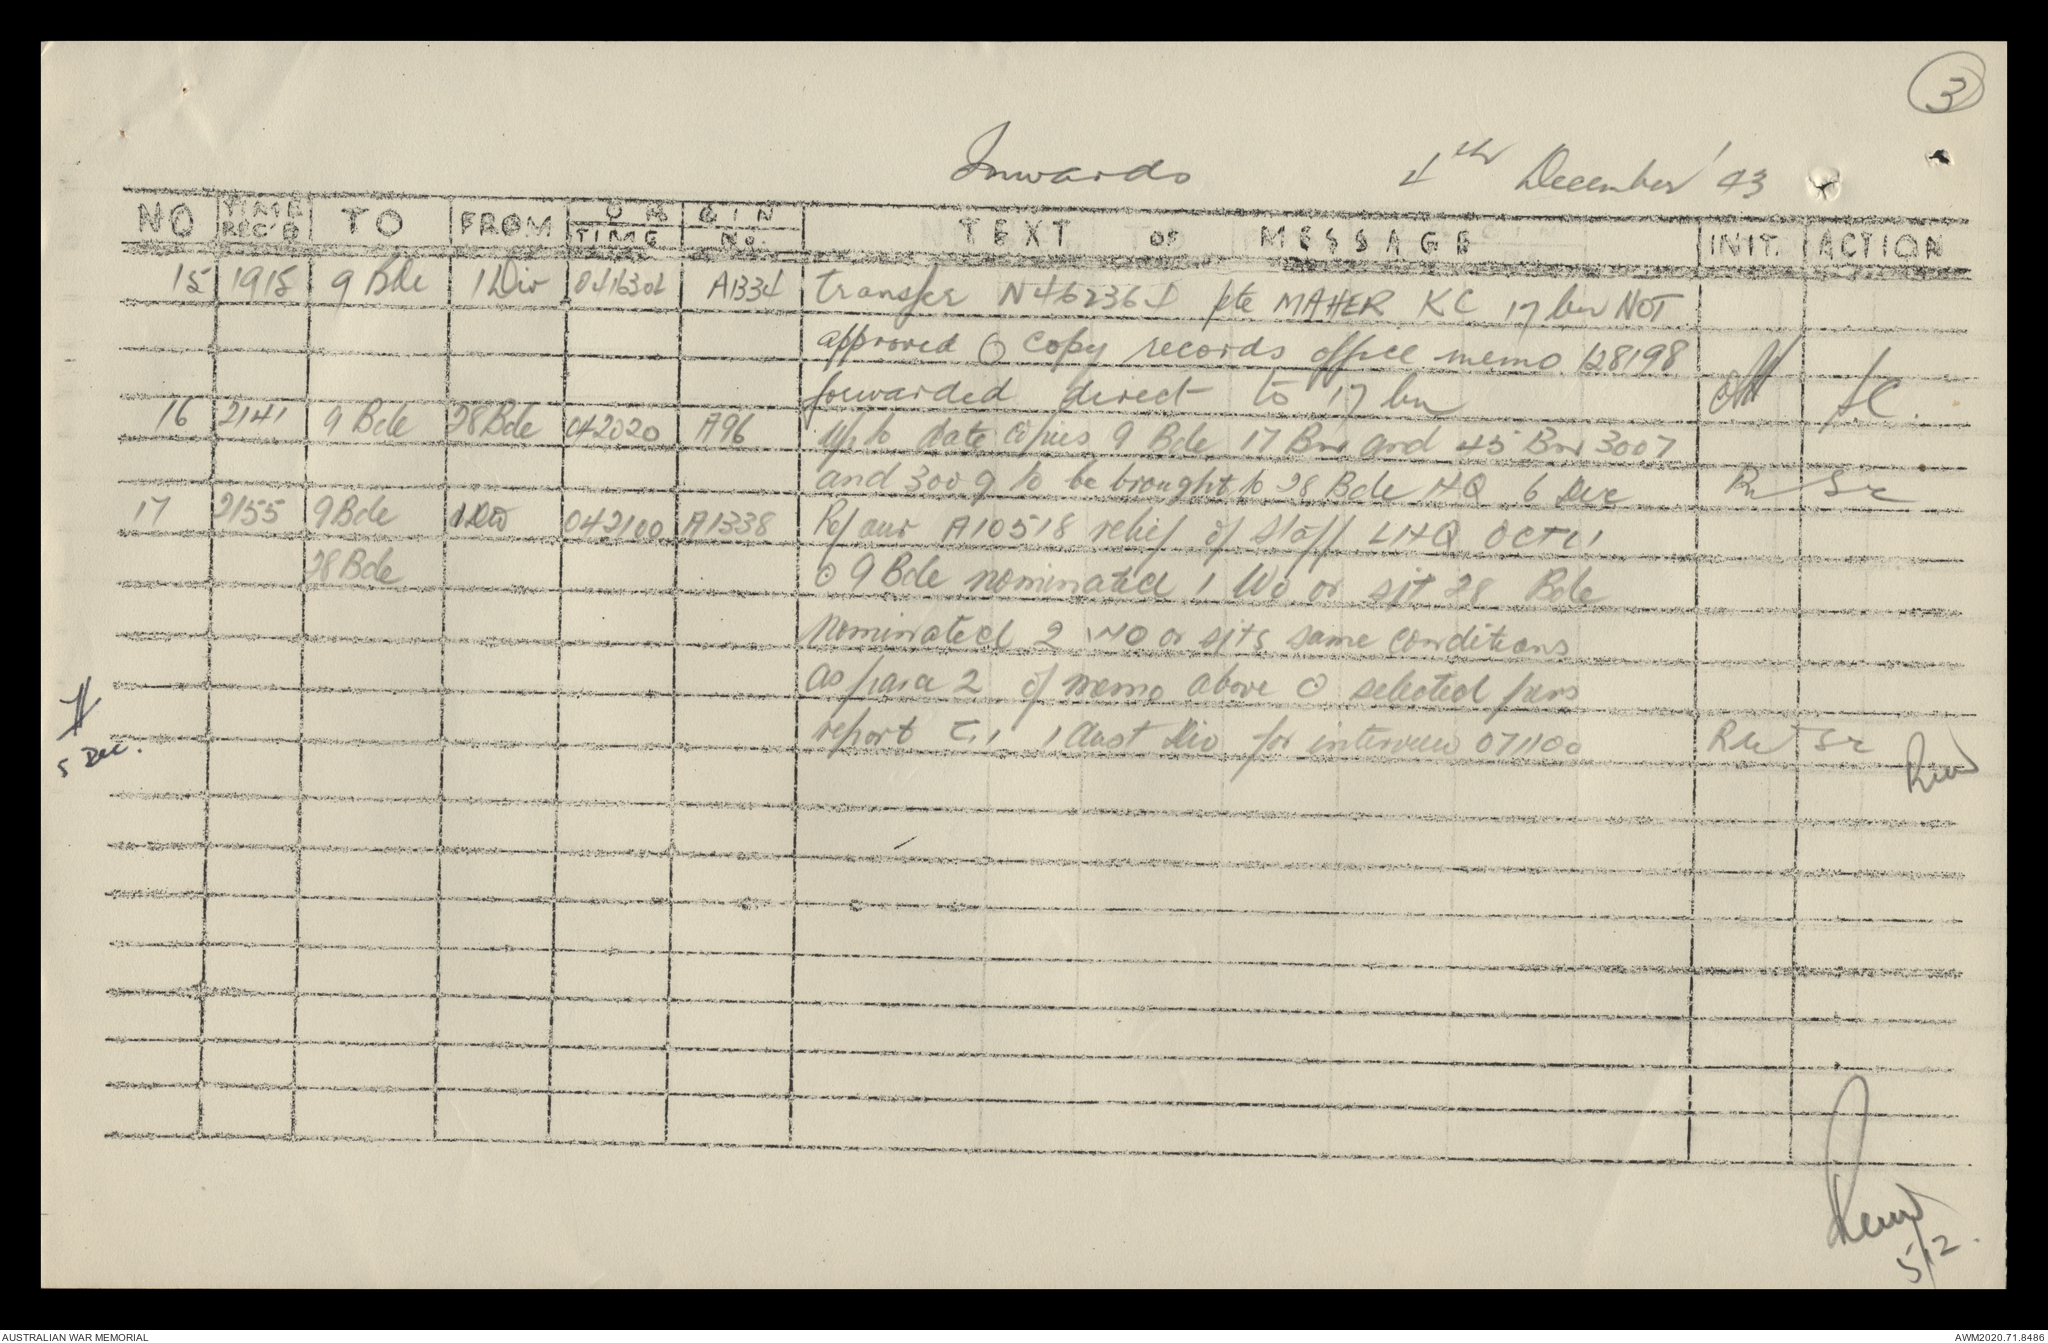 3
Inwards 4th December '43
NO TIME REC'D TO FROM ORIGIN TIME No. TEXT OF MESSAGE INIT. ACTION
15 1915 9 Bde 1 Div A1334 transfer pte MAHER KC 17 bn NOT
approved O copy records office memo 128198
forwarded direct to 17 bn SC.
16 2141 9 Bde 28 Bde 042020 A96 up to date copies 9 Bde 17 Bn and 45 Bn 3007
and 3009 to be brought to 28 Bde HQ 6 Dec
17 2155 9 Bde 1 Div 042100 A1338 Ref our A10518 relief of staff LHQ OCTU
28 Bde O 9 Bde nominated 1 WO or sjt 28 Bde
nominated 2 WO or sjts same conditions
as para 2 of memo above O selected pers
report 1 Aust Div for interview 071100
5 Dec.
5/12.
AUSTRALIAN WAR MEMORIAL
AWM2020.71.8486